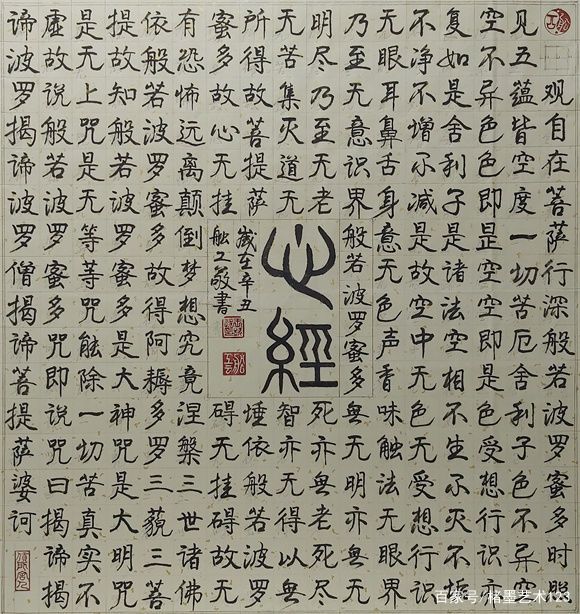 观自在菩萨行深般若波罗蜜多时照
见五蕴皆空度一切苦厄舍利子色不异空
空不异色色即是空空即是色受想行识亦
复如是舍利子是诸法空相不生不灭不垢
不净不增不减是故空中无色无受想行识
无眼耳鼻舌身意无色声香味触法无眼界
乃至无意识界般若波罗蜜多無无明亦無无
明尽乃至无老死亦無老死尽
无苦集灭道无智亦无得以無
所得故菩提萨埵依般若波罗
蜜多故心无挂碍无挂碍故无
有恐怖远离颠倒梦想究竟涅槃三世诸佛
依般若波罗蜜多故得阿耨多罗三藐三菩
提故知般若波罗蜜多是大神咒是大明咒
是无上咒是无等等咒能除一切苦真实不
虚故说般若波罗蜜多咒即说咒曰揭谛揭
谛波罗揭谛波罗僧揭谛菩提萨婆诃
心經
歲在辛丑
敬書
百家号/格墨艺术123